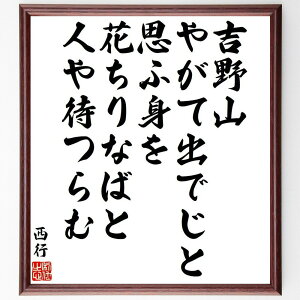 吉野山
やがて出でじと
思ふ身を
花ちりなばと
人や待つらむ
西行